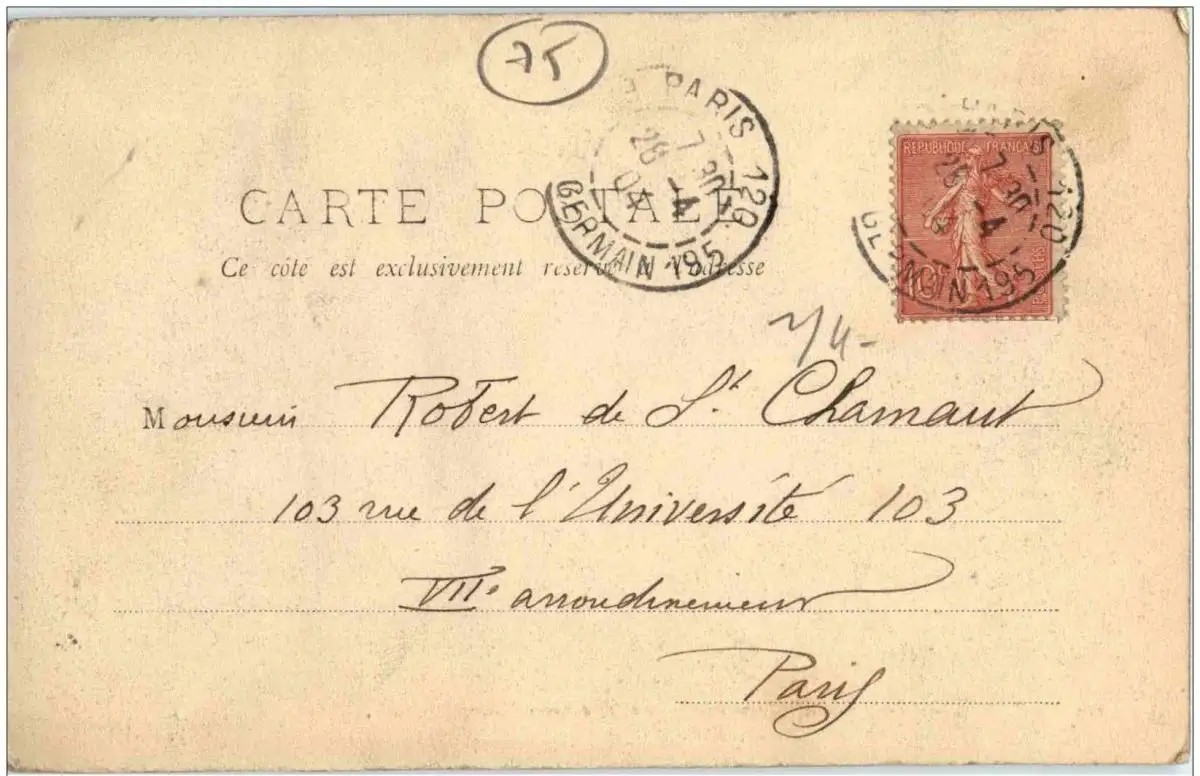 75
PARIS 120
7 30
28 -4
04
Bd ST GERMAIN 195
RÉPUBLIQUE FRANÇAISE
10c
POSTES
PARIS 120
7 30
28 -4
GERMAIN 195
CARTE POSTALE
Ce côté est exclusivement réservé à l'adresse
Monsieur Robert de St. Chamant
103 rue de l'Université 103
VIIe arrondissement
Paris